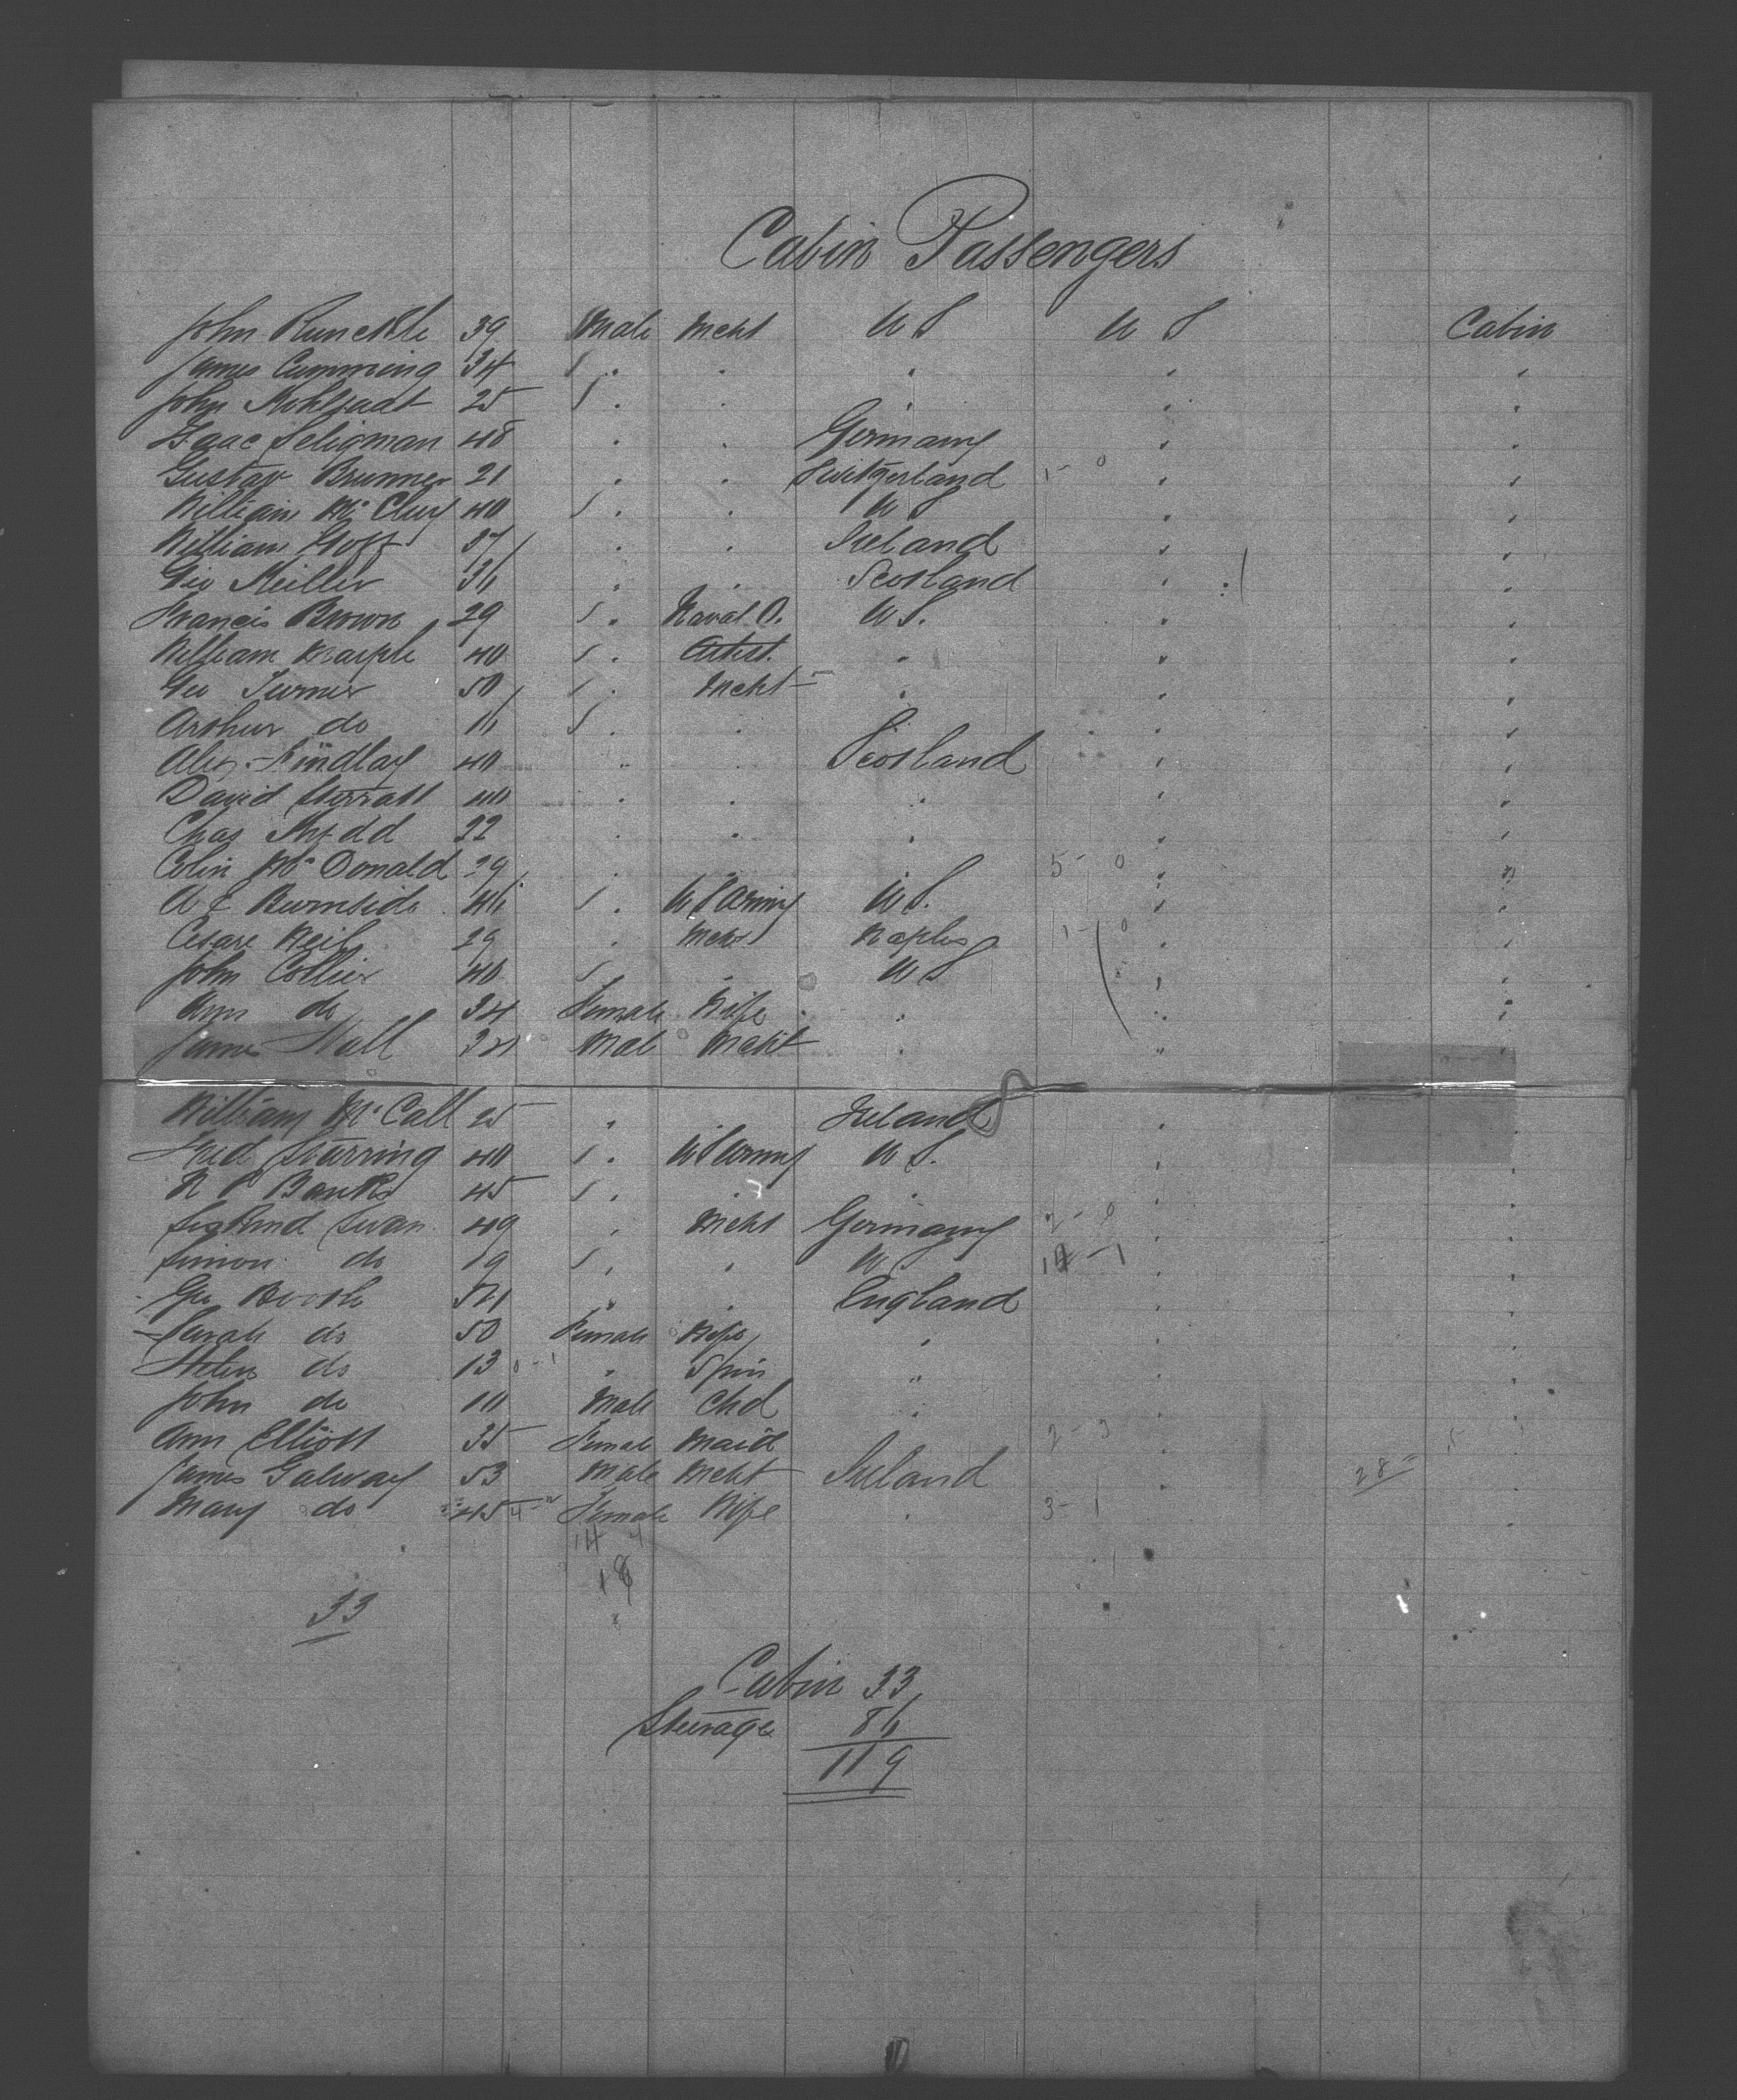 Cabin Passengers
John Runckle 39 Male Mcht U S U S Cabin
James Cumming 34 S " " " " "
John Kohlsaat 25 S " " " " "
Isaac Seligman 48 " " Germany " "
Gustav Brunner 21 " " Switzerland 1 - 0 " "
William McClury 40 S " " U S " "
William Goff 37 " " Ireland " "
Geo Miller 36 " " Scotland " "
Francis Brown 29 S " Naval O. U S. " "
William Marple 40 S " Artist. " " "
Geo Turner 50 S " Mcht " " "
Arthur do 16 S " " " " "
Alex. Findlay 40 " " Scotland " "
David Sterratt 40 " " " " "
Chas Shedd 22 " " " " "
Colin McDonald 29 " " " 5 - 0 " "
A E Burnside 46 S " U S Army U S. " "
Cesare Weil 29 " Mcht Naples 1 - 0 " "
John Collier 40 S " U S " "
Ann do 34 Female Wife " " "
James Hall 34 Male Mcht " " "
William McCall 25 " " Ireland " "
Fred Starring 40 S " U S Army U S. " "
N P Banks 45 S " " " " "
Swan 49 " Mcht Germany " "
Simon do 19 S " " U S 14 - 1 " "
Geo Booth 54 " " England " "
Sarah do 50 Female Wife " " "
Helen do 13 0 - 1 " Spin " " "
John do 10 Male Chd " " "
Ann Elliott 35 Female Maid 2 - 3 " "
James Galway 53 Male Mcht Ireland 28 " "
Mary do 45 Female Wife " 3 - 1 " "
14 4
18
33
Cabin 33
Steerage 86
119